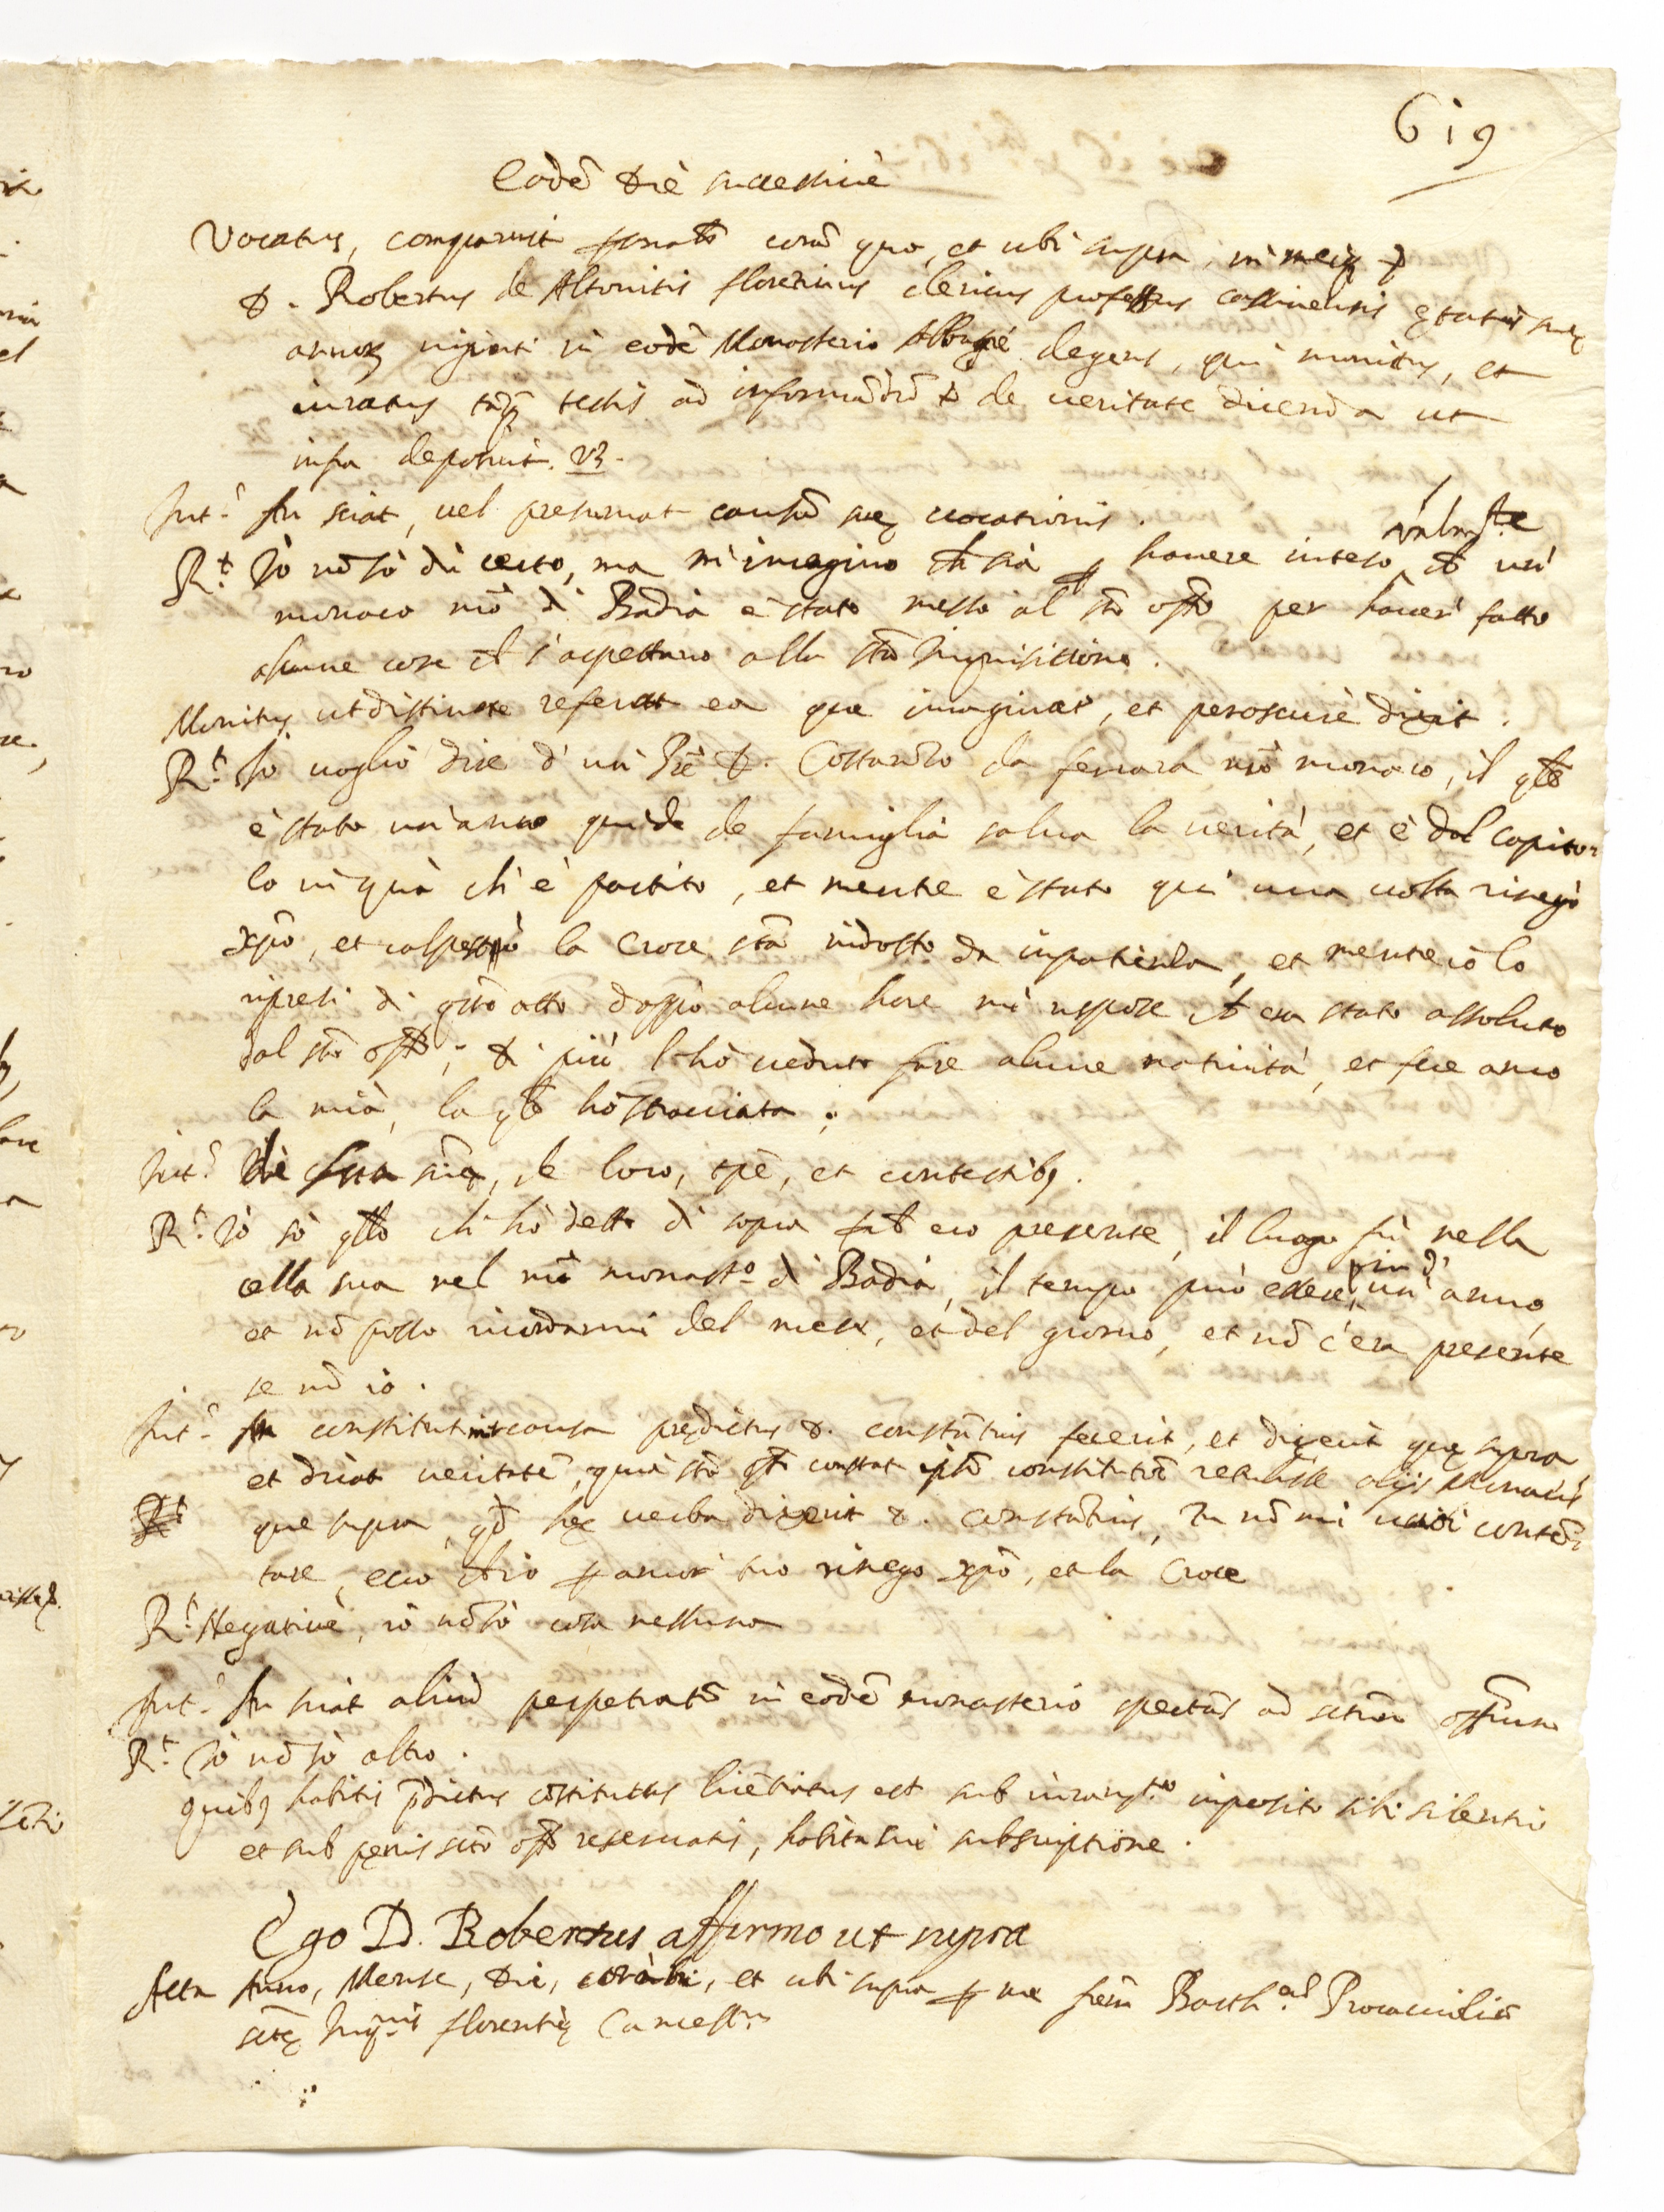 619
Eodẽ die successiuè
Vocatus, comparuit psonalr corã quo, et ubi supra, in meiq p
D. Robertus de Altouitis florentinus clericus professus cassinensis ętatis suę
annoꝝ uiginti in eodẽ Monasterio Abbatię degens, qui monitus, et
iuratus tãq testis ad informãdũ de ueritate dicenda ut
infra deposuit. vz.
Int.s An sciat, uel presumat causã suę uocationis.
R.t Io nõ sò di certo, ma m'imagino ch sia p hauere inteso ch un
monaco nrõ di Badia è stato messo al stõ offo per hauer fatto
alcune cose ch s'aspettano alla stã Inquisitione.
Monitus ut distincte referat ea que imaginat, et peroscurè dixit.
R.t Io uoglio dire d'un Prẽ D. Costantino da ferrara nrõ monaco, il qle
è stato un'anno quì de famiglia salua la uerità, et è dal capito=
lo in quà ch'è partito, et mentre è stato qui una uolta rinegò
xpõ, et calpestò la Croce stã indotto da inpatienza, et mentre io lo
ripresi di qsto atto doppo alcune hore mi rispose ch era stato assoluto
dal stõ offo; di più l'hò ueduto fare alcune natiuità, et fece anco
la mia, la qle hò stracciata.
Int.s De cã sciẽ, de loco, tpẽ, et contestibꝫ.
R.t Io sò qllo ch'hò detto di sopra pch ero presente, il luogo fù nella
cella sua nel nrõ monastro di Badia, il tempo può essere più d'un'anno,
et nõ posso ricordarmi del mese, et del giorno, et nõ c'era presente
se nõ io.
Int.s An constitutus causa prędictus D. constãtinus fecerit, et dixerit quę supra
et dicat ueritatẽ, quia stõ offo constat ipsũ constitutũ retulisse alijs Monacis
que supra, qd hęc uerba dixerit D. constãtinus, Tu nõ mi uuoi contẽ=
tare, ecco ch io p amor tuo rinego xpõ, et la Croce
R.t Negatiuè, io nõ sò cosa nessuna
Int.s An sciat aliud perpetratũ in eodẽ monasterio spectãs ad sctum offitium
R.t Io nõ sò altro.
Quibꝫ habitis pdictus cõstitutus licẽtiatus est sub iuramto imposito sibi silentio
et sub pęnis sctõ offo reseruatis, habita sui subscriptione.
Ego D. Robertus affirmo ut supra
Acta Anno, Mense, die, et ubi supra p me frẽm Barth.
sctę Inqnis florentię Cancellm